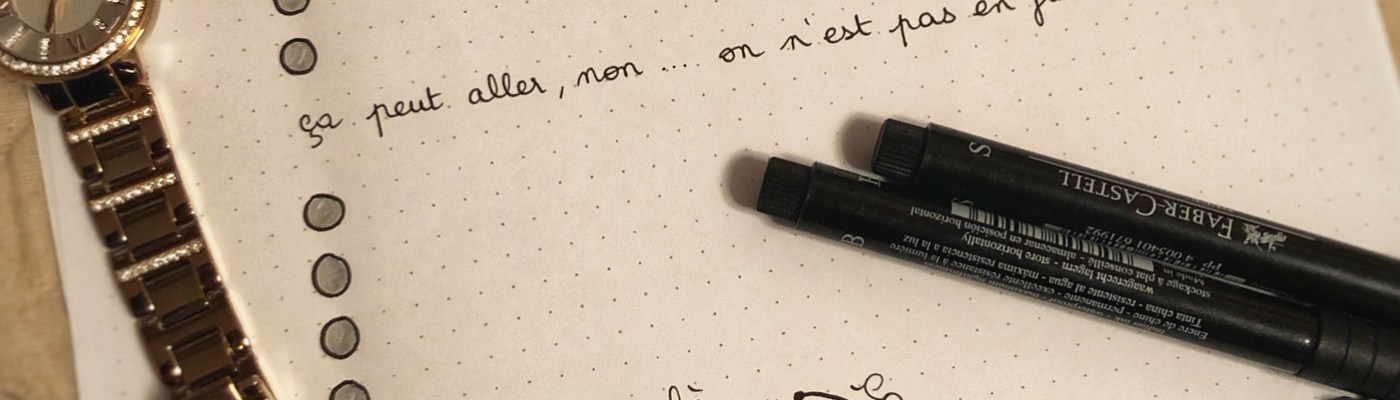 VI
ça peut aller, non ... on n'est pas en
S
FABER-CASTELL
4 005401 671992
B
Encre de chine - permanente - excellente résistance à la lumière
Tinta china - resistente al agua - máxima resistencia a la luz
waagerecht lagern - store horizontally
stockage à plat conseillé - almacenar en posición horizontal
Made in